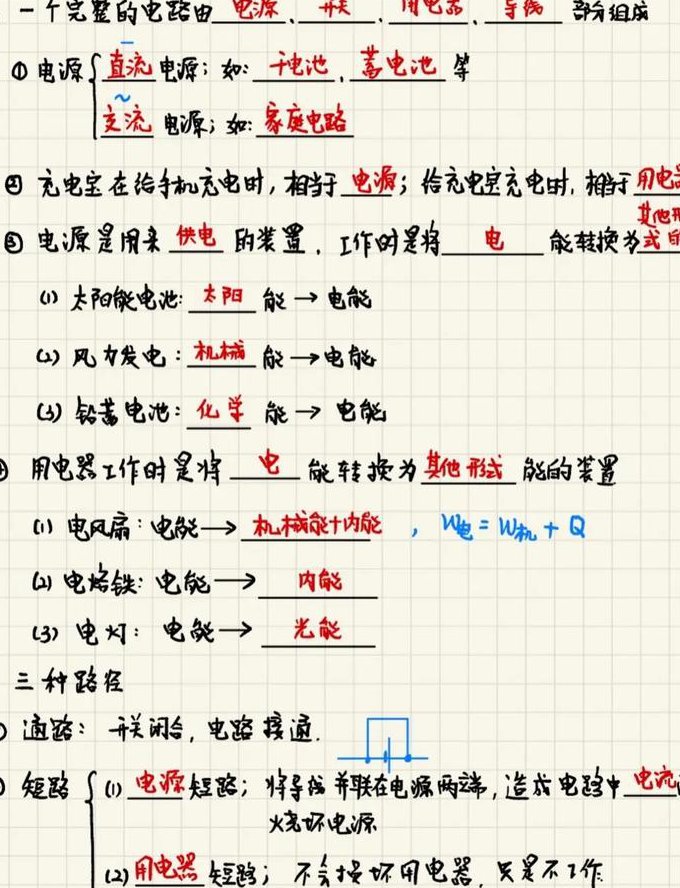 一个完整的电路由 电源、开关、用电器、导线 部分组成
① 电源 直流 电源；如：干电池、蓄电池 等
交流 电源；如：家庭电路
② 充电宝在给手机充电时，相当于 电源；给充电宝充电时，相当于 用电器
③ 电源是用来 供电 的装置，工作时是将 电 能转换为 其他形式的
(1) 太阳能电池：太阳 能 → 电能
(2) 风力发电：机械 能 → 电能
(3) 铅蓄电池：化学 能 → 电能
用电器工作时是将 电 能转换为 其他形式 能的装置
(1) 电风扇：电能 → 机械能+内能，W电 = W机 + Q
(2) 电烙铁：电能 → 内能
(3) 电灯：电能 → 光能
三种路径
通路：开关闭合，电路接通.
短路 (1) 电源 短路；将导线并联在电源两端，造成电路中 电流
烧坏电源
(2) 用电器 短路；不会损坏用电器，只是不工作